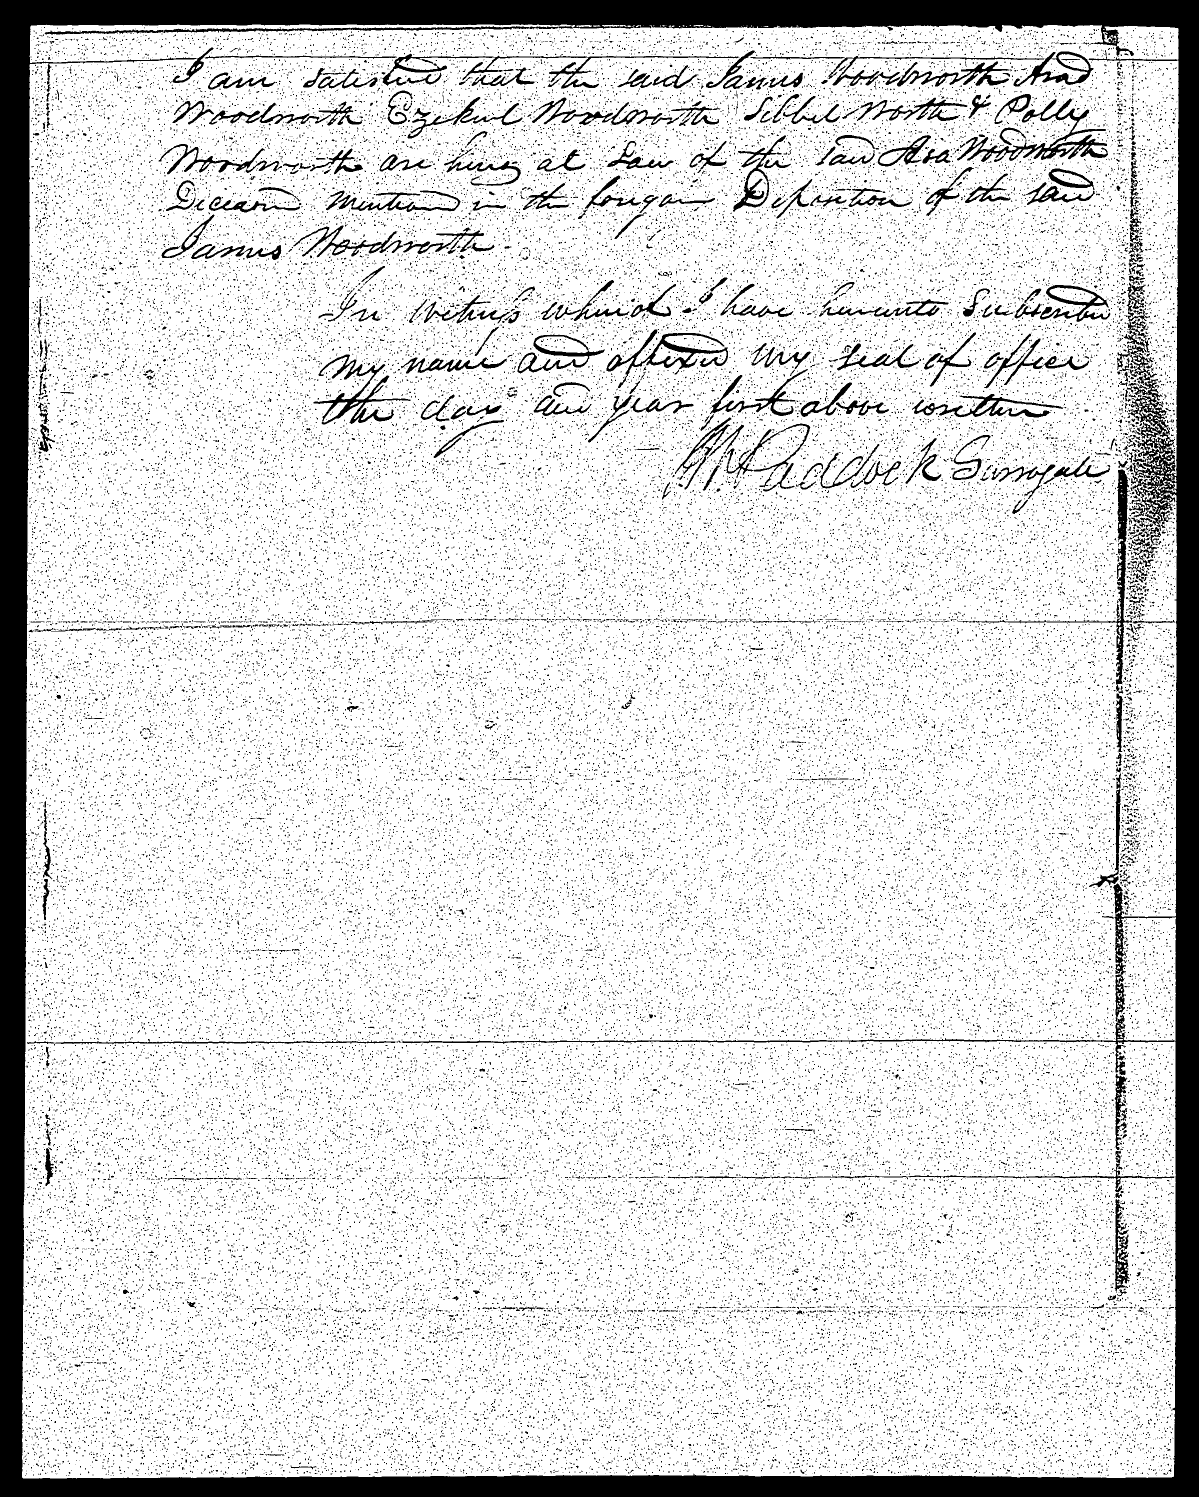 I am satisfied that the said James Woodworth Asad
Woodworth Ezekiel Woodworth Sibbel North & Polly
Woodworth are heirs at Law of the said Asa Woodworth
Deceased mentioned in the foregoing Deposition of the said
James Woodworth.
In witness whereof I have hereunto Subscribed
my name and affixed my seal of office
the day and year first above written
Paddock Surrogate